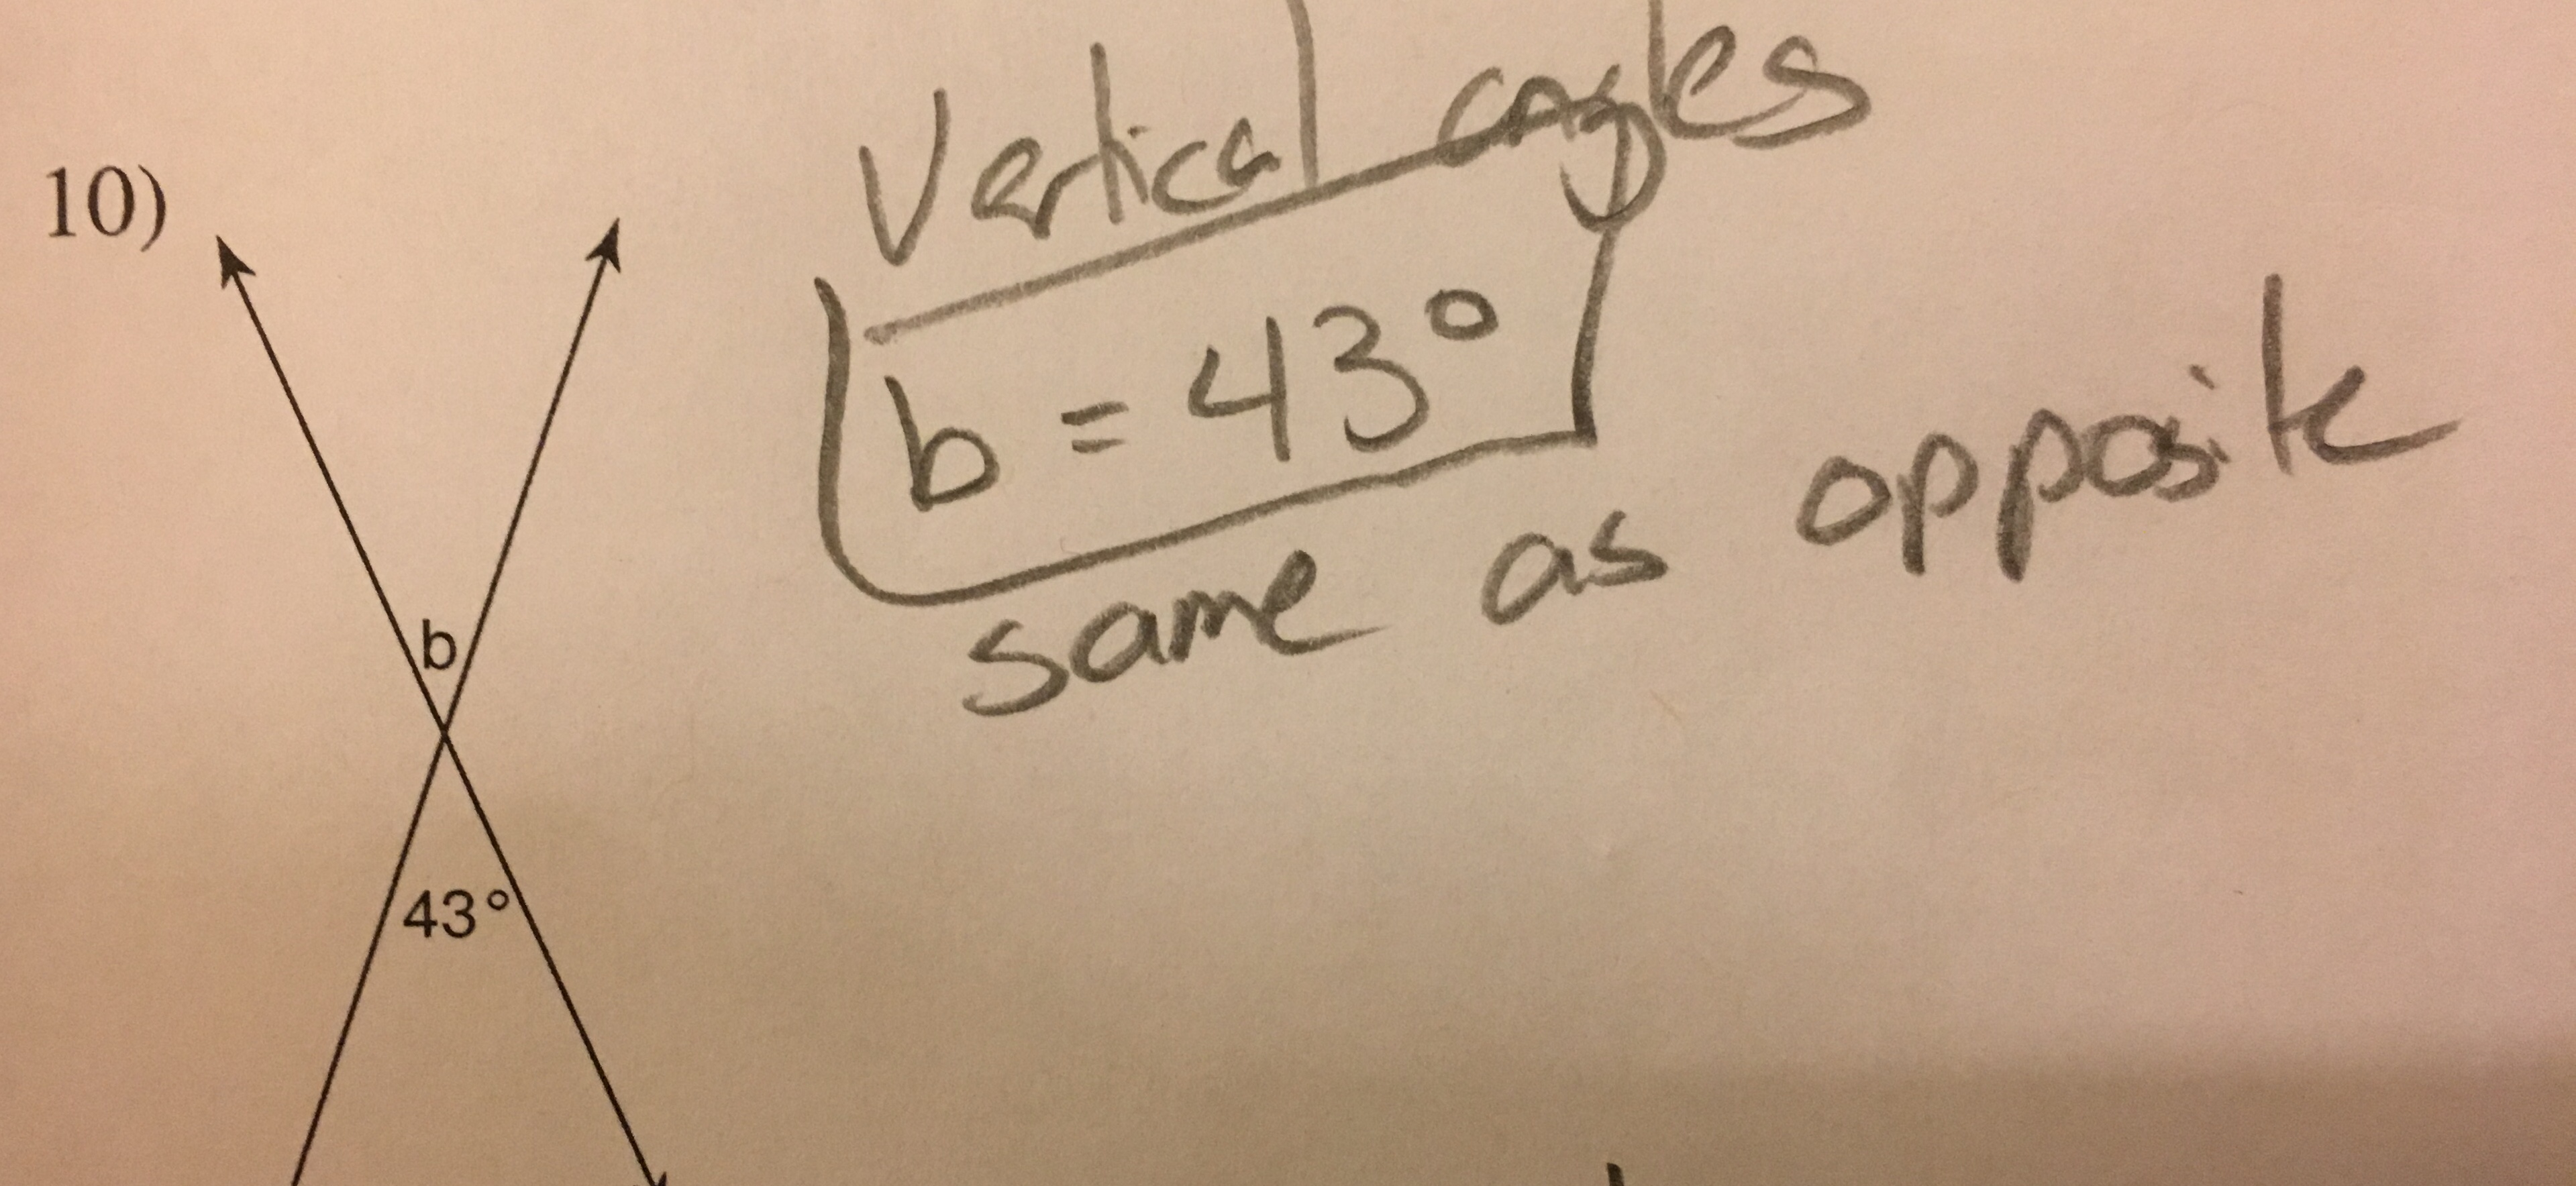 10)
Vertical angles
b = 43°
same as opposite
b
43°